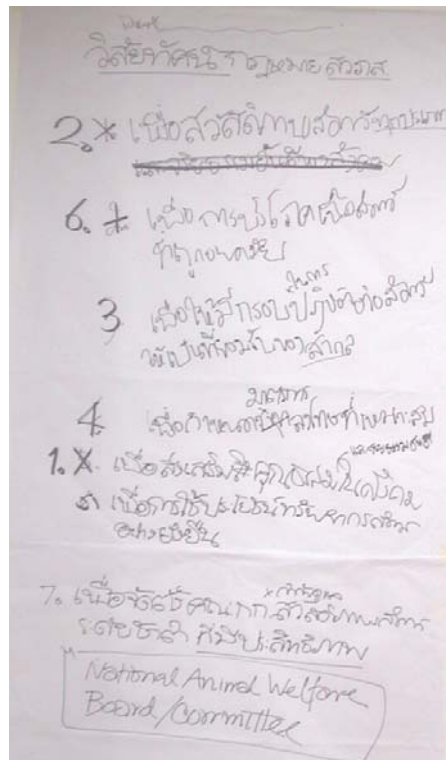 วิสัยทัศน์ กฎหมายสวัสดิภาพ
2.* เพื่อสวัสดิภาพสัตว์ทุกประเภท
6. * เพื่อการบริโภคเนื้อสัตว์
ที่ถูกอนามัย
ในการ
3 เพื่อให้มีกรอบปฏิบัติต่อสัตว์
ให้เป็นที่ยอมรับของสากล
มาตรการ
4. เพื่อกำหนดบทลงโทษที่เหมาะสม
1. X. เพื่อส่งเสริมคุณธรรมในสังคม
5 เพื่อการใช้ประโยชน์ทรัพยากรสัตว์
อย่างยั่งยืน
7. เพื่อจัดตั้งคณะกก. สวัสดิภาพสัตว์
ระดับชาติ ที่มีประสิทธิภาพ
National Animal Welfare
Board/Committee